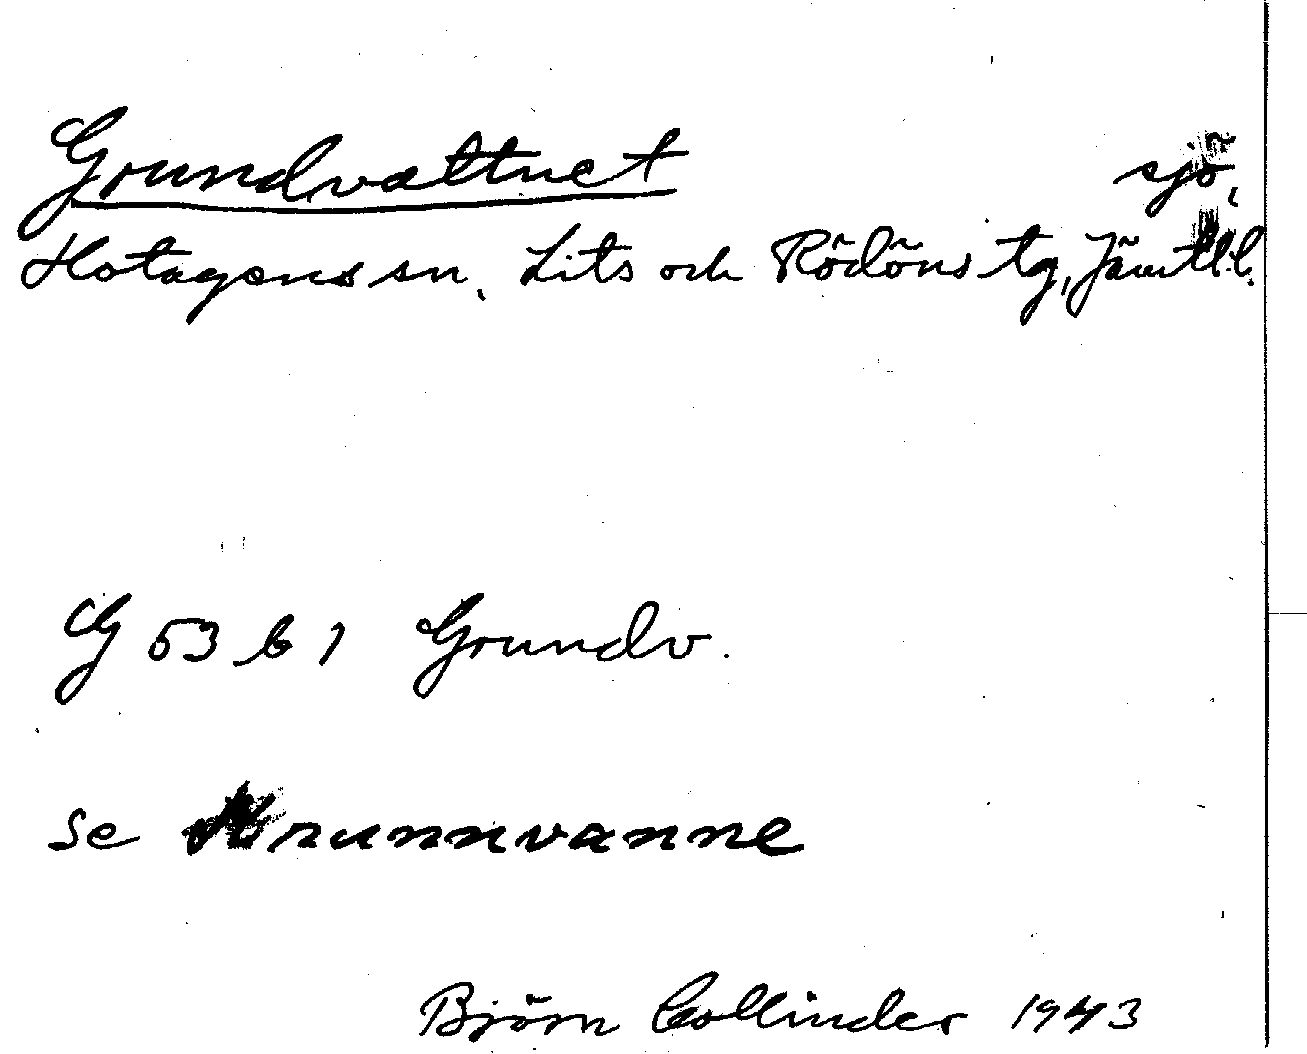 Grundvattnet sjö,
Hotagens sn, Lits och Rödöns tg, Jämtl.l.
G 53 b 1 Grundv.
se Krunnvanne
Björn Collinder 1943